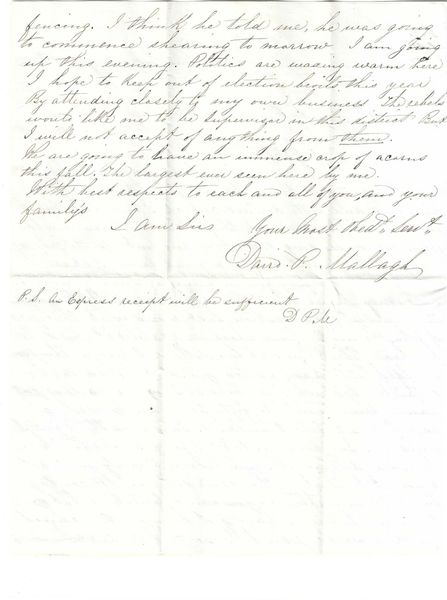 fencing. I think he told me, he was going
to commence shearing to morrow I am going
up this evening. Politics are waxing warm here
I hope to keep out of election bouts this year
By attending closely to my own business The rebels
would like me to be supervisor in this district But
I will not accept of anything from them.
We are going to have an immense crop of acorns
this fall. The largest ever seen here by me.
With best respects to each and all of you, and your
family's
I am Sirs Your Most Obedt. Servt.
David P. Mallagh
P. S. An Express receipt will be sufficient
D P. M